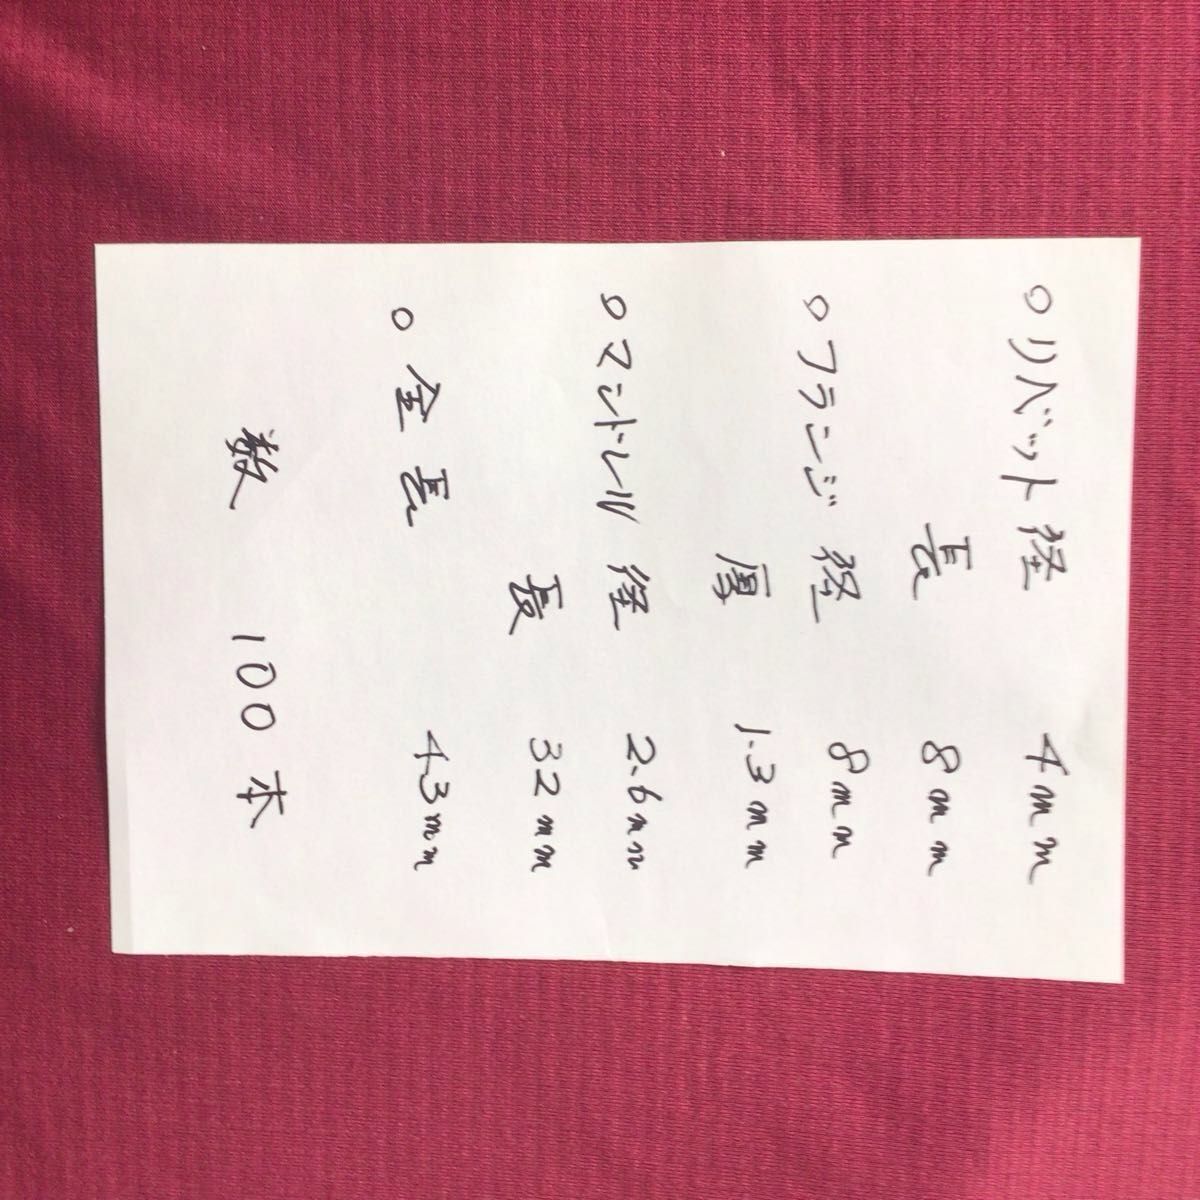 ○リベット径 4mm
長 8mm
○フランジ径 8mm
厚 1.3mm
○マンドレル径 2.6mm
長 32mm
○全長 43mm
数 100本